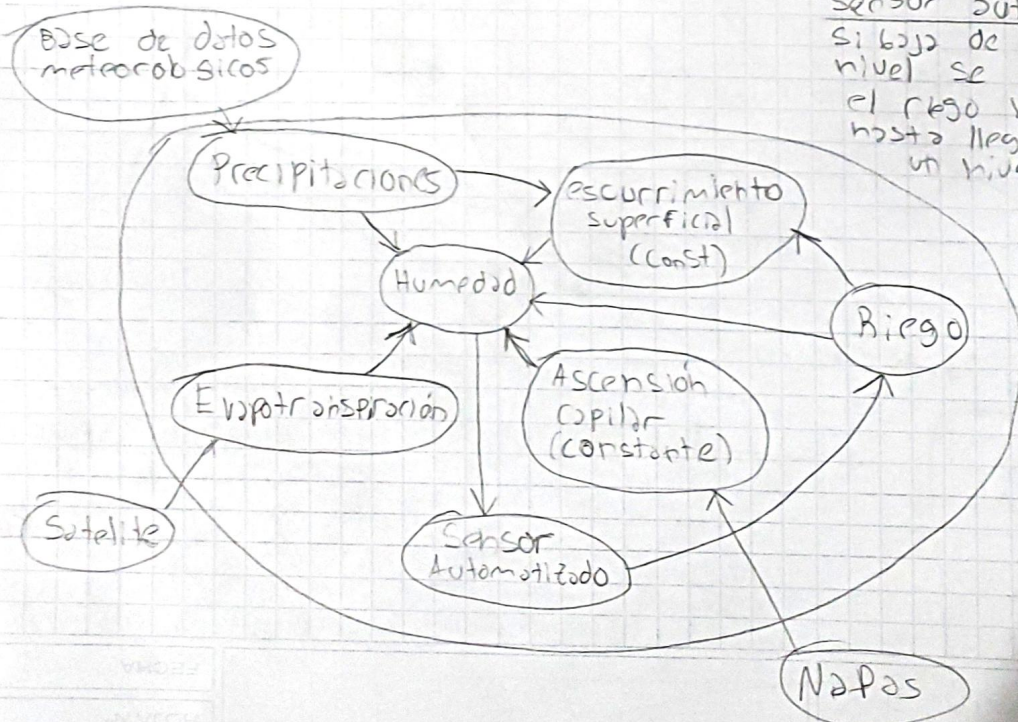 Base de datos
meteorológicos
sensor
si baja de
nivel se
el riego
hasta
un
Precipitaciones
escurrimiento
superficial
(const)
Humedad
Riego
Evapotranspiración
Ascensión
capilar
(constante)
Satelite
Sensor
Automatizado
Napas
FECHA